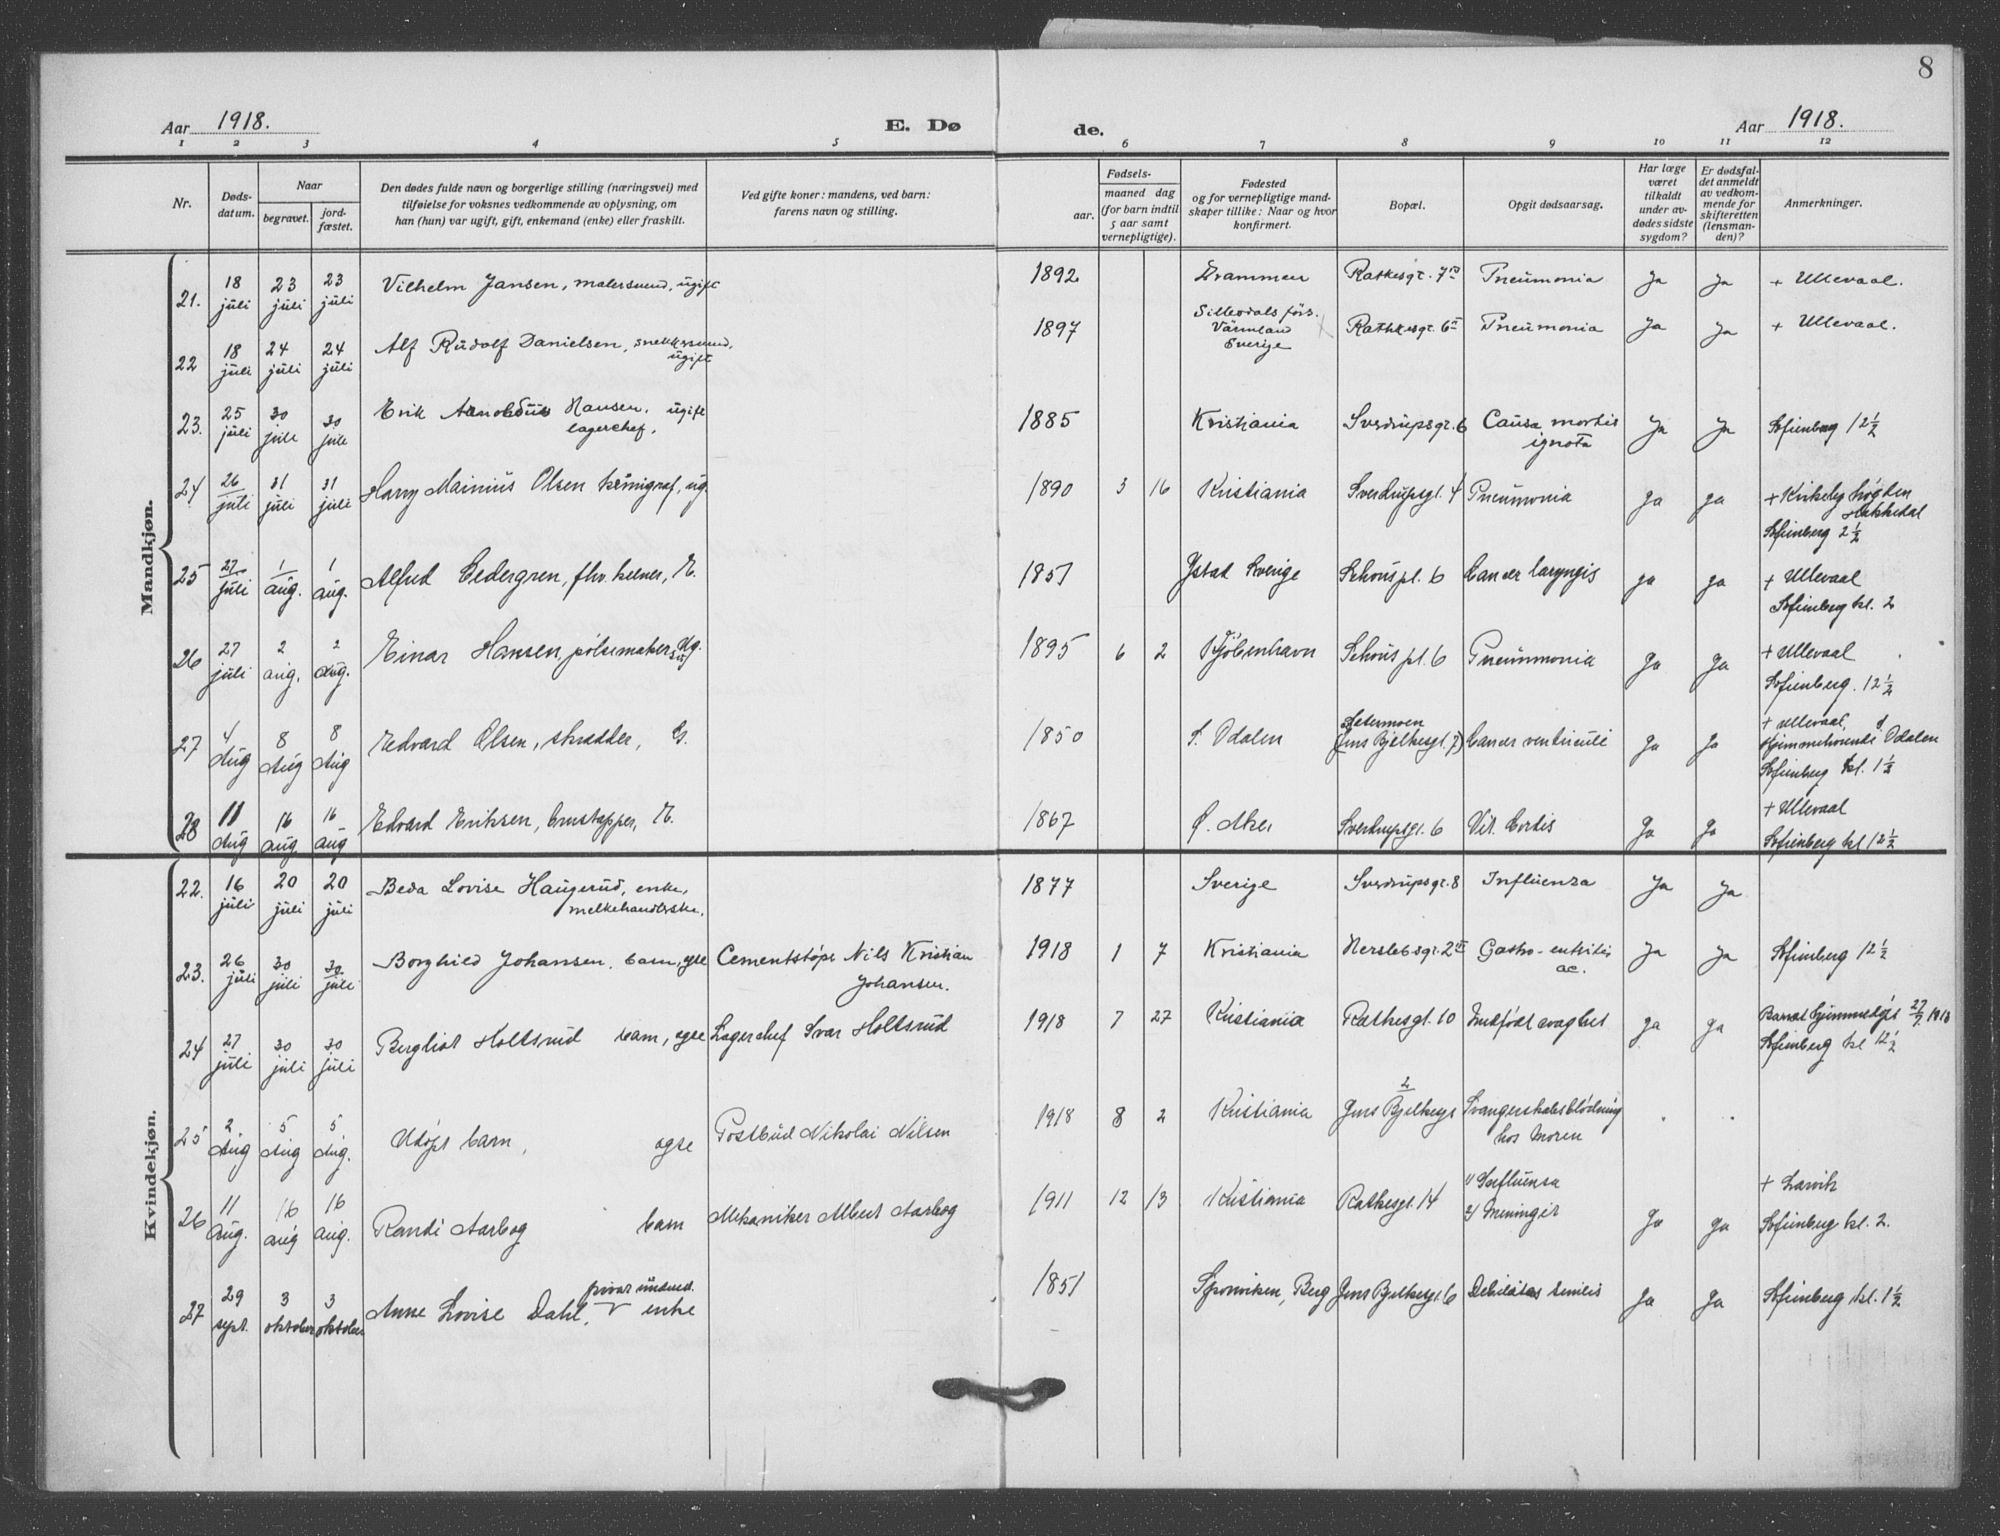 8
Aar 1918. E. Dø de. Aar 1918.
1 2 3 4 5 6 7 8 9 10 11 12
Nr.
Døds-
datum.
Naar
begravet.
jord-
fæstet.
Den dødes fulde navn og borgerlige stilling (næringsvei) med
tilføielse for voksnes vedkommende av oplysning, om
han (hun) var ugift, gift, enkemand (enke) eller fraskilt.
Ved gifte koner: mandens, ved barn:
farens navn og stilling.
Fødsels-
aar.
maaned dag
(for barn indtil
5 aar samt
vernepligtige).
Fødested
og for vernepligtige mand-
skaper tillike: Naar og hvor
konfirmert.
Bopæl.
Opgit dødsaarsag.
Har læge
været
tilkaldt
under av-
dødes sidste
sygdom?
Er dødsfal-
det anmeldt
av vedkom-
mende for
skifteretten
(lensman-
den)?
Anmerkninger.
Mandkjøn.
21. 18 juli 23 juli 23 juli Vilhelm Jansen, malersvend, ugift 1892 Drammen Rathkesgt. 7 Pneumonia Ja Ja + Ullevaal.
22 18 juli 24 juli 24 juli Alf Rudolf Danielsen, snekkersvend, ugift 1897 Sillerdals förs. Värmland Sverige Rathkesgt. 6 II Pneumonia Ja Ja + Ullevaal.
23. 25 juli 30 juli 30 juli Erik Arnoldus Hansen, ugift
lagerchef. 1885 Kristiania Sverdrupsgt. 6 Causa mortis
ignota Ja Ja Sofienberg 12 1/2
24 26 juli 31 juli 31 juli Harry Mainius Olsen kemigraf, ug. 1890 3 16 Kristiania Sverdrupsgt. 4 Pneumonia Ja Ja + Kirkeby
Hakkedal
Sofienberg 2 1/2
25 27 juli 1 aug. 1 aug. Alfred Cedergren, fhv. kelner, E. 1851 Ystad Sverige Schous pl. 6 Cancer laryngis Ja Ja + Ullevaal
Sofienberg kl. 2
26 27 juli 2 aug. 2 aug. Einar Hansen, pølsemakersv. Ug. 1895 6 2 Kjøbenhavn Schous pl. 6 Pneunmonia Ja Ja + Ullevaal
Sofienberg. 12 1/2
27 4 Aug 8 Aug 8 Aug Edvard Olsen, skrædder, G. 1850 S. Odalen Sætermoen
(Jens Bjelkesgt. 7) Cancer ventriculi Ja Ja + Ullevaal,
Hjemmehørende S. Odalen
Sofienberg kl. 1 1/2
28 11 Aug 16 aug 16 aug Edvard Eriksen, brustapper, E. 1867 Ø. Aker Sverdrupsgt. 6 Vit. Cordis Ja Ja + Ullevaal
Sofienberg kl 12 1/2
Kvindekjøn.
22. 16 juli 20 juli 20 juli Beda Lovise Haugerud, enke,
melkehandlerske. 1877 Sverige Sverdrupsgt. 8 Influenza Ja Ja
23. 26 juli 30 juli 30 juli Borghild Johansen, barn, egte Cementstøper Nils Kristian
Johansen. 1918 1 7 Kristiania Herslebsgt. 2 III Gastro-enteritis
ac. Ja Ja Sofienberg 12 1/2
24 27 juli 30 juli 30 juli Bergliot Holtsrud barn, egte Lagerchef Ivar Holtsrud 1918 7 27 Kristiania Rathkesgt. 10 Medfødt svaghet Ja Ja Barnet hjemmedøpt 27/7 1918
Sofienberg kl 12 1/2
25 2 Aug 5 Aug 5 Aug. Udøpt barn, egte Postbud Nikolai Nilsen 1918 8 2 Kristiania Jens Bjelkesgt 2 Svangerskabsblødning
hos moren
26 11 Aug. 16 aug 16 aug. Randi Aarbog barn Mekaniker Albert Aarbog 1911 12 13 Kristiania Rathkesgt. 14 1) Influensa
2) Meningit Ja Ja + Larvik
Sofienberg kl. 2.
27 29 sept. 3 oktober 3 oktober Anne Lovise Dahl, privat underst. enke 1851 Sponviken, Berg Jens Bjelkesgt. 6 Debilitas senilis Ja Ja Sofienberg kl. 1 1/2